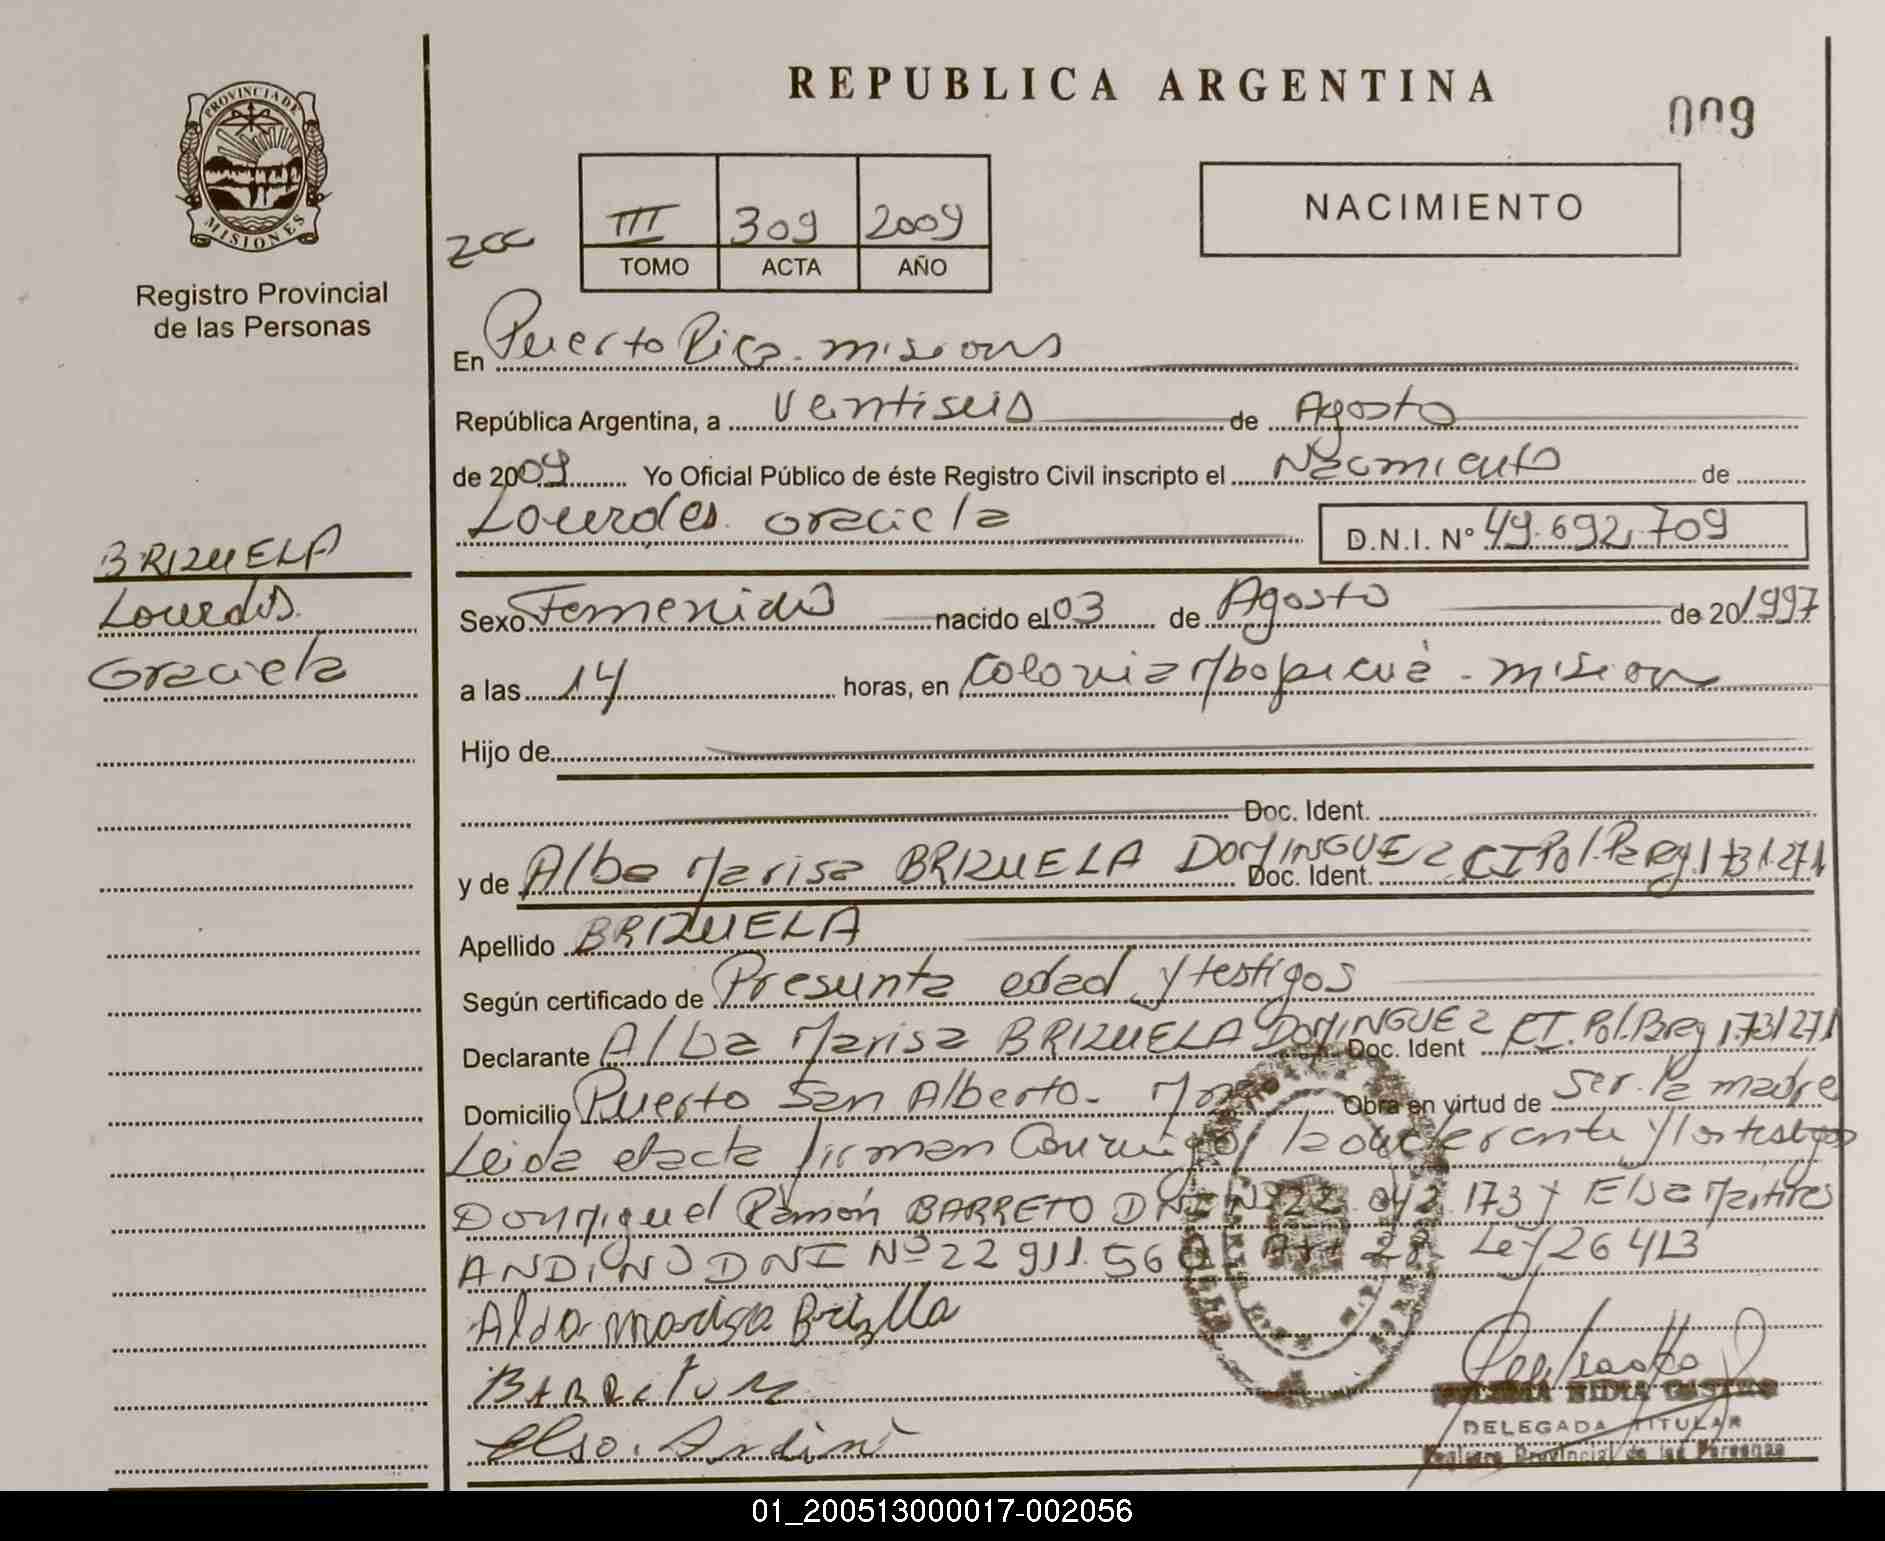 REPUBLICA ARGENTINA
009
PROVINCIA DE
MISIONES
Registro Provincial
de las Personas
NACIMIENTO
III 309 2009
TOMO ACTA AÑO
En Puerto Rico - misiones
República Argentina, a Ventiseis de Agosto
de 2009 Yo Oficial Público de éste Registro Civil inscripto el Nacimiento de
Lourdes Graciela
D.N.I. N° 49.692.709
BRIZUELA
Lourdes
Graciela
Sexo Femenido nacido el 03 de Agosto de 20 1997
a las 14 horas, en Colonia Mbopicuá - mision
Hijo de
Doc. Ident.
y de Alba Marisa BRIZUELA DOMINGUEZ Doc. Ident. CI Pol. Parg. 1731.271
Apellido BRIZUELA
Según certificado de Presunta edad y testigos
Declarante Alba Marisa BRIZUELA DOMINGUEZ Doc. Ident CI. Pol. Parg 1.731271
Domicilio Puerto San Alberto - Mnes Obra en virtud de Ser la madre
Leida el acta firman Conmigo la declarante y los testigos
Don Miguel Ramón BARRETO DNI Nº 22.042.173 y Elsa Martires
ANDINO DNI Nº 22 911.56 Art 28 Ley 26 413
Alda marisa Brizlla
BARRETO M
Elsa. Andino
NIDIA CASTRO
DELEGADA TITULAR
Registro Provincial de las Personas
01_200513000017-002056